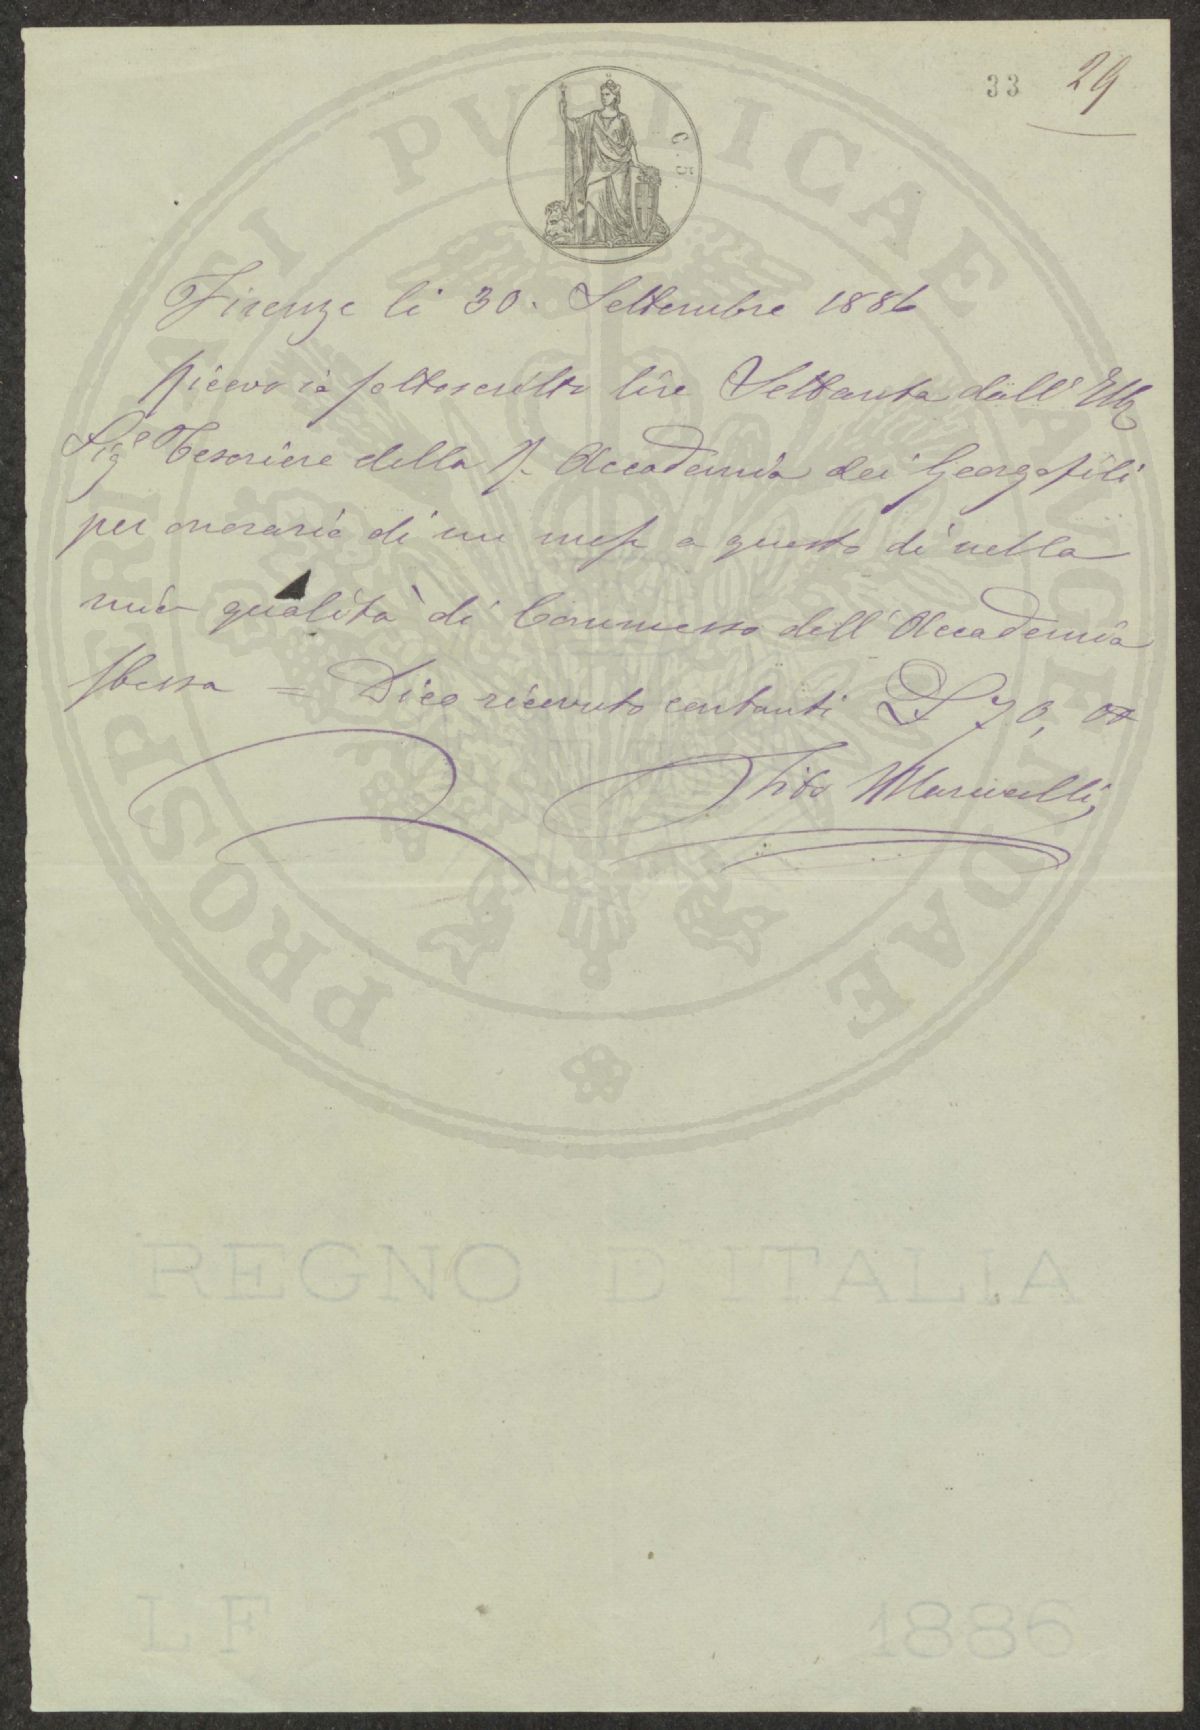 33 29
C. 5.
Firenze li 30. Settembre 1886
Ricevo io sottoscritto lire Settanta dall' Ill
Sige Tesoriere della R. Accademia dei Georgofili
per onorario di un mese a questo dì nella
mia qualità di Commesso dell' Accademia
stessa = Dico ricevuto contanti L 70,00
Tito
PROSPERITASI PUBLICAE AVGENDAE
REGNO D'ITALIA
LF 1886